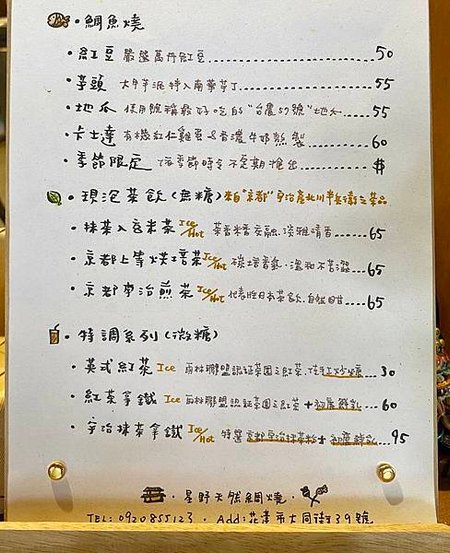 ·鯛魚燒
·紅豆 嚴選萬丹紅豆......50
·芋頭 大甲芋泥......55
·地瓜 使用號稱最好吃的"台農57號"地瓜......55
·卡士達 有機紅仁雞蛋&香濃牛奶熬製......60
·季節限定 依季節時令不定期推出......$
·現泡茶飲(無糖)來自"京都"宇治產北川半兵衛之茶品
·抹茶入玄米茶 Ice/Hot 茶香米香交融.淡雅清香......65
·京都上等烘焙茶 Ice/Hot 碳焙香氣.溫和不苦澀......65
·京都宇治煎茶 Ice/Hot 代表性日本茶飲.自然回甘......65
·特調系列(微糖)
·英式紅茶 Ice 雨林聯盟認證茶園之紅茶.......30
·紅茶拿鐵 Ice 雨林聯盟認證茶園之紅茶+初鹿鮮乳......60
·宇治抹茶拿鐵 Ice/Hot 特選京都宇治抹茶粉+初鹿鮮乳......95
·星野天然鯛燒·
TEL: 0920855123 · Add:花蓮市大同街39號